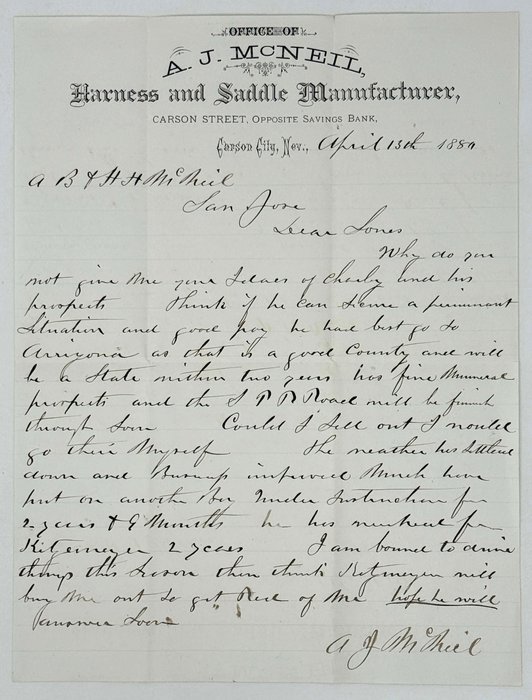 OFFICE OF
A. J. MCNEIL,
Harness and Saddle Manufacturer,
CARSON STREET, OPPOSITE SAVINGS BANK,
Carson City, Nev., April 13th 1880
A B & H H McNeil
San Jose
Dear Sones
Why do you
not give me your Idaes of Charley and his
prospects Think if he can secure a permanant
Situation and good pay he had best go to
Arrizona as that is a good County and will
be a State within two years his fine Munneral
prospects and the S P R Road will be finish
through Soon Could I Sell out I would
go their Myself The weather has Settled
down and Buisness improved Much have
put on another boy Under Instruction for
2 years & 9 Months he has worked for
Kitzmeyer 2 years I am bound to drive
things this Season then think Kitzmeyer will
buy Me out to get Red of Me hope he will
answer Soon
A J McNeil